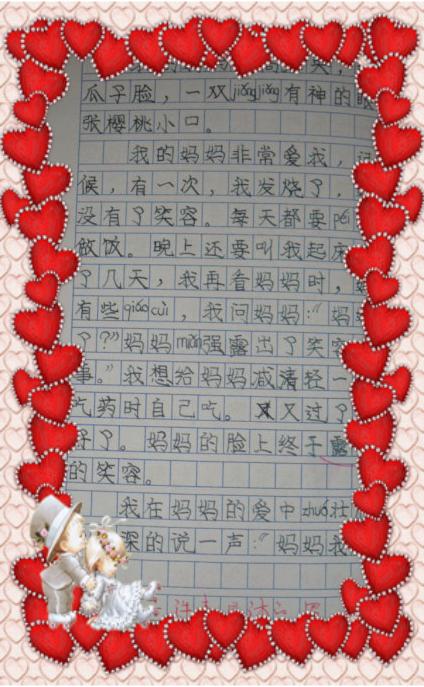 瓜子脸，一双jiǒngjiǒng有神的眼
张樱桃小口。
我的妈妈非常爱我，
候，有一次，我发烧了，
没有了笑容。每天都要péi
做饭。晚上还要叫我起床
了几天，我再看妈妈时，
有些qiáocuì，我问妈妈：“妈
了？”妈妈miǎn强露出了笑容
事。”我想给妈妈减清轻一
吃药时自己吃。又又过了
好了。妈妈的脸上终于露
的笑容。
我在妈妈的爱中zhuó壮
深的说一声：“妈妈我